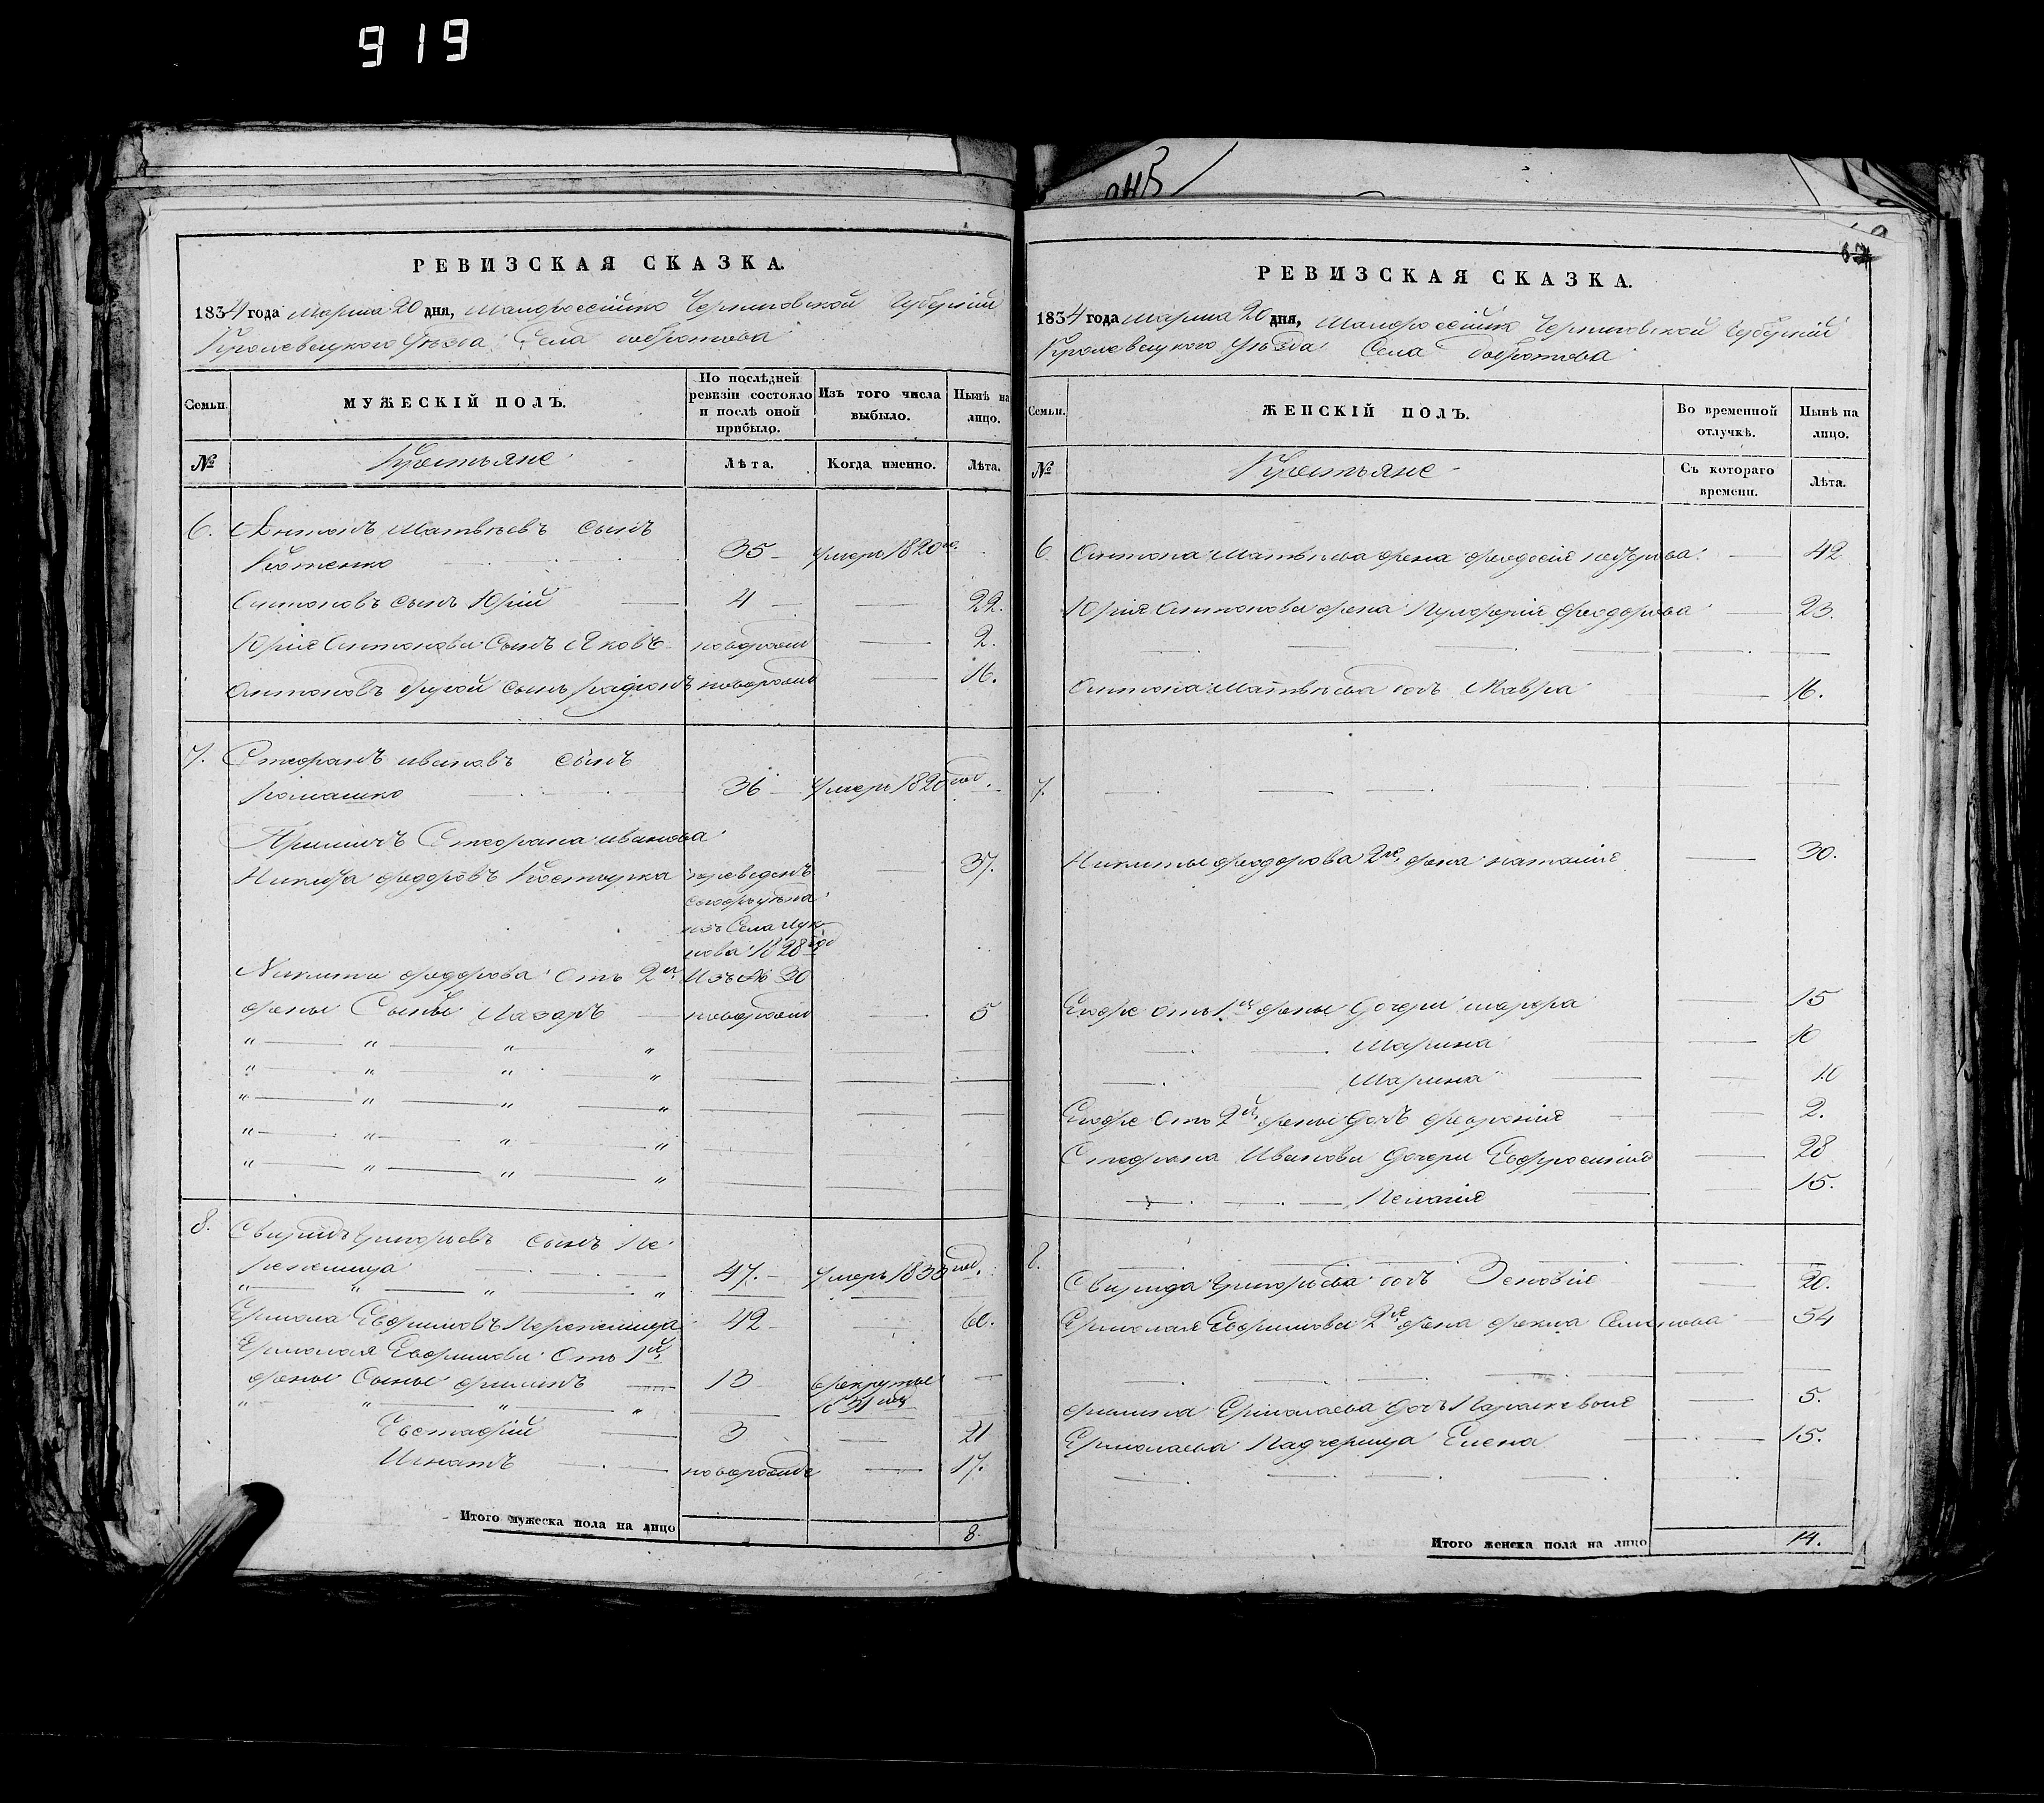 919
РЕВИЗСКАЯ СКАЗКА.
1834 года марта 20 дня, Малороссійско Черниговской Губерніи
Кролевецкого уѣзда Села Добротова
Семьи.
МУЖЕСКІЙ ПОЛЪ.
По послѣдней ревизіи состояло и послѣ оной прибыло.
Изъ того числа выбыло.
Нынѣ на лицо.
№ Крестьяне Лѣта. Когда именно. Лѣта.
6. Антонъ Матвѣевъ сынъ
35 умеръ 1820
Антоновъ сынъ Юрій 4 22.
Юрія Антонова сынъ Яковъ новорожд 2.
Антоновъ другой сынъ Радіонъ новорожд 16.
7. Стефанъ Ивановъ сынъ
Ромашко 36 умеръ 1820 год.
Пріимичъ Стефана Иванова
Никита Федоровъ переведенъ 37.
изъ Села
нова 1828 года
Никиты Федорова отъ 2й Изъ № 30
жены Сынъ Лазарь новорожд 5
" " " "
" " " "
" " " "
" " " "
" " " "
8. Свиридъ Григорьевъ сынъ Пе
репелица 47. умеръ 1833 год.
" " " "
Ермола Евфимовъ Перепелица 42 60.
Ермолая Евфимова отъ 1й
жены Сыны Филипъ 13 в рекруты
" " " " 1831 год
Евстафій 3 21
Игнатъ новорожде 17.
Итого мужеска пола на лицо 8.
245
67
РЕВИЗСКАЯ СКАЗКА.
1834 года марта 20 дня, Малороссійско Черниговской Губерніи
Кролевецкого уѣзда Села Добротова
Семьи.
ЖЕНСКІЙ ПОЛЪ.
Во временной отлучкѣ.
Нынѣ на лицо.
№ Крестьяне Съ котораго времени. Лѣта.
6 Антона Матвѣева жена Феодосія 42
Юрія Антонова жена Пулхерія Феодорова 23.
Антона Матвѣева дочь Мавра 16.
7.
Никиты Феодорова 2я жена Наталія 30.
Егоже отъ 1й жены дочери Марфа 15
Марина 10
Марина 10
Егоже отъ 2й жены дочь Февронія 2.
Стефана Иванова дочери Евфросинія 28
Пелагія 15.
8.
Свирида Григорьева дочь Зеновія 20.
Ермолая Евфимова 2я жена Фекла Семенова 54
Филипа Ермолаева дочь Параскевія 5.
Ермолаева Падчерица Елена 15.
Итого женска пола на лицо 14.